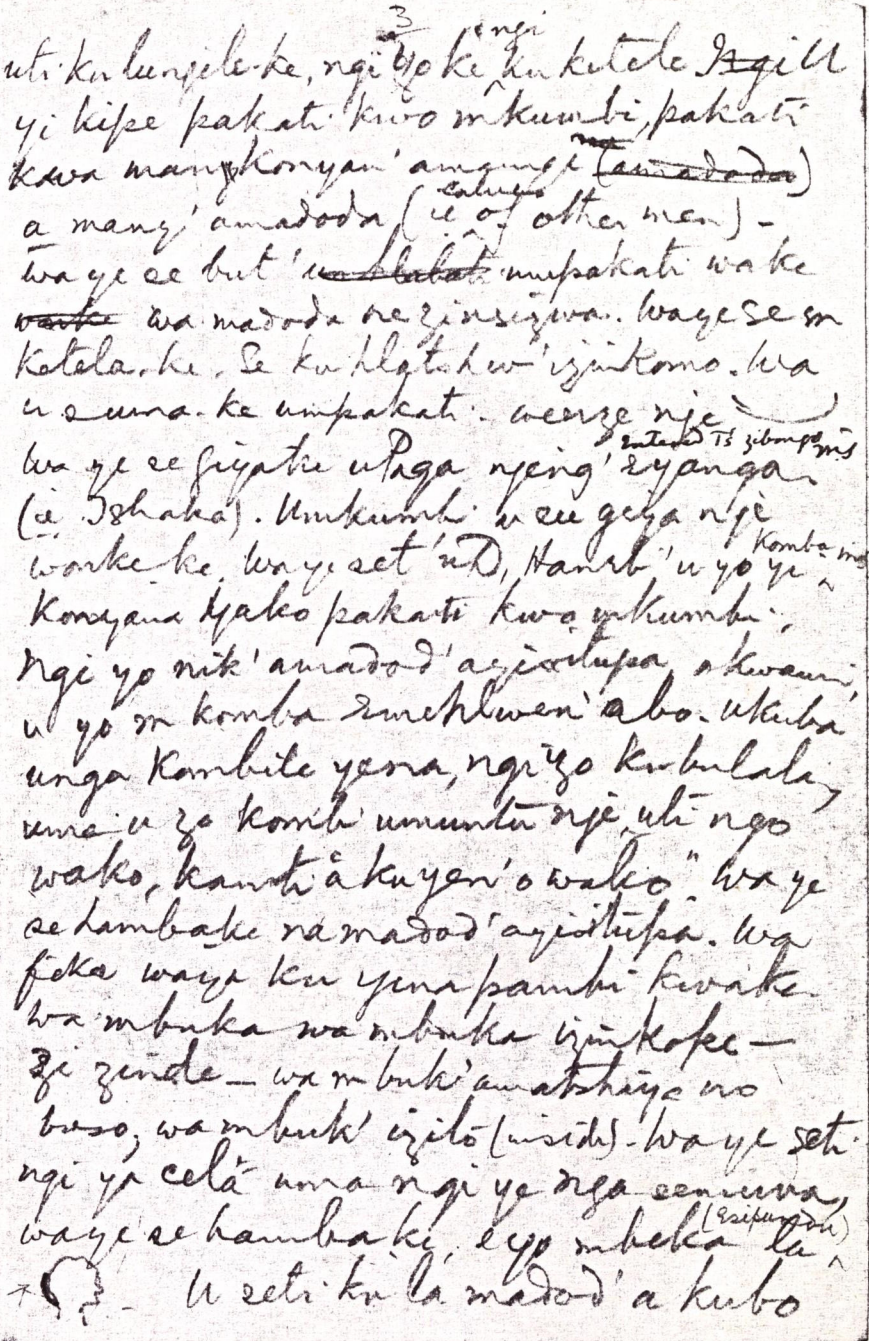 3
uti kulunjele-ke, ngi yo ke ngi ku ketele Ngi U
yi kipe pakati kwo mkumbi, pakati
kwa manykonyan' amange (amadoda)
a many' amadoda (ie of other men) -
wa ye se but' umhlabati umpakati wake
wake wa madoda nezinsizwa. Waye se m
ketela-ke. Se ku hlatshw' izinkomo. Wa
u suma-ke umpakati. weeze nje
Wa ye se giyake uPaga njeng' inyanga
(ie Tshaka). Umkumbi u su geya nje
wonke ke. Waye set' uD, Hamb' u yo yi komba
Konyana yako pakati kwo mkumbi,
Ngi yo nik' amadod' ayisitupa akwami,
u yo m komba emehlwen' abo. Ukuba
unga kombile yena, ngizo kubulala,
uma u zo komb' umuntu nje, uti ngo
wako, kanti a ku yen' o wako" Wa ye
se hambake namadod' ayisitupa. Wa
fika waya ku yena pambi kwake
wa mbuka wa mbuka izinkope -
zi zinde - wa mbuk' amatshiya no
buso, wa mbuk' izito (inside). Wa ye seti
ngi ya cela uma ngi ye nga semuva,
waye se hambake, eyo mbeka la (esifundu)
U seti ku la madod' a kubo